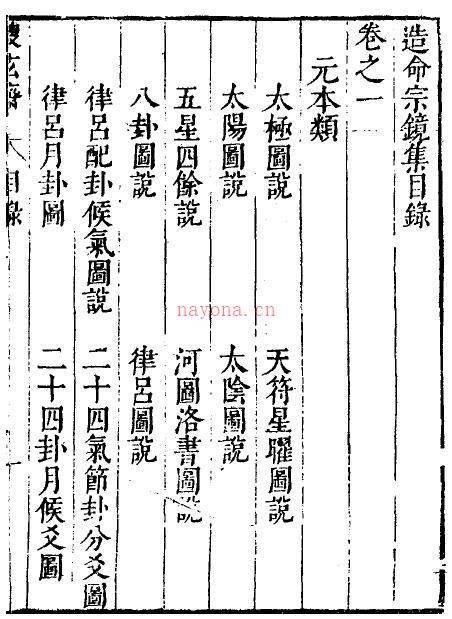 造命宗鏡集目錄
卷之一
元本類
太極圖說
天符星曜圖說
太陽圖說
太陰圖說
五星四餘說
河圖洛書圖說
八卦圖說
律呂圖說
律呂配卦候氣圖說
二十四氣節卦分爻圖
律呂月卦圖
二十四卦月候爻圖
目錄
nayona.cn